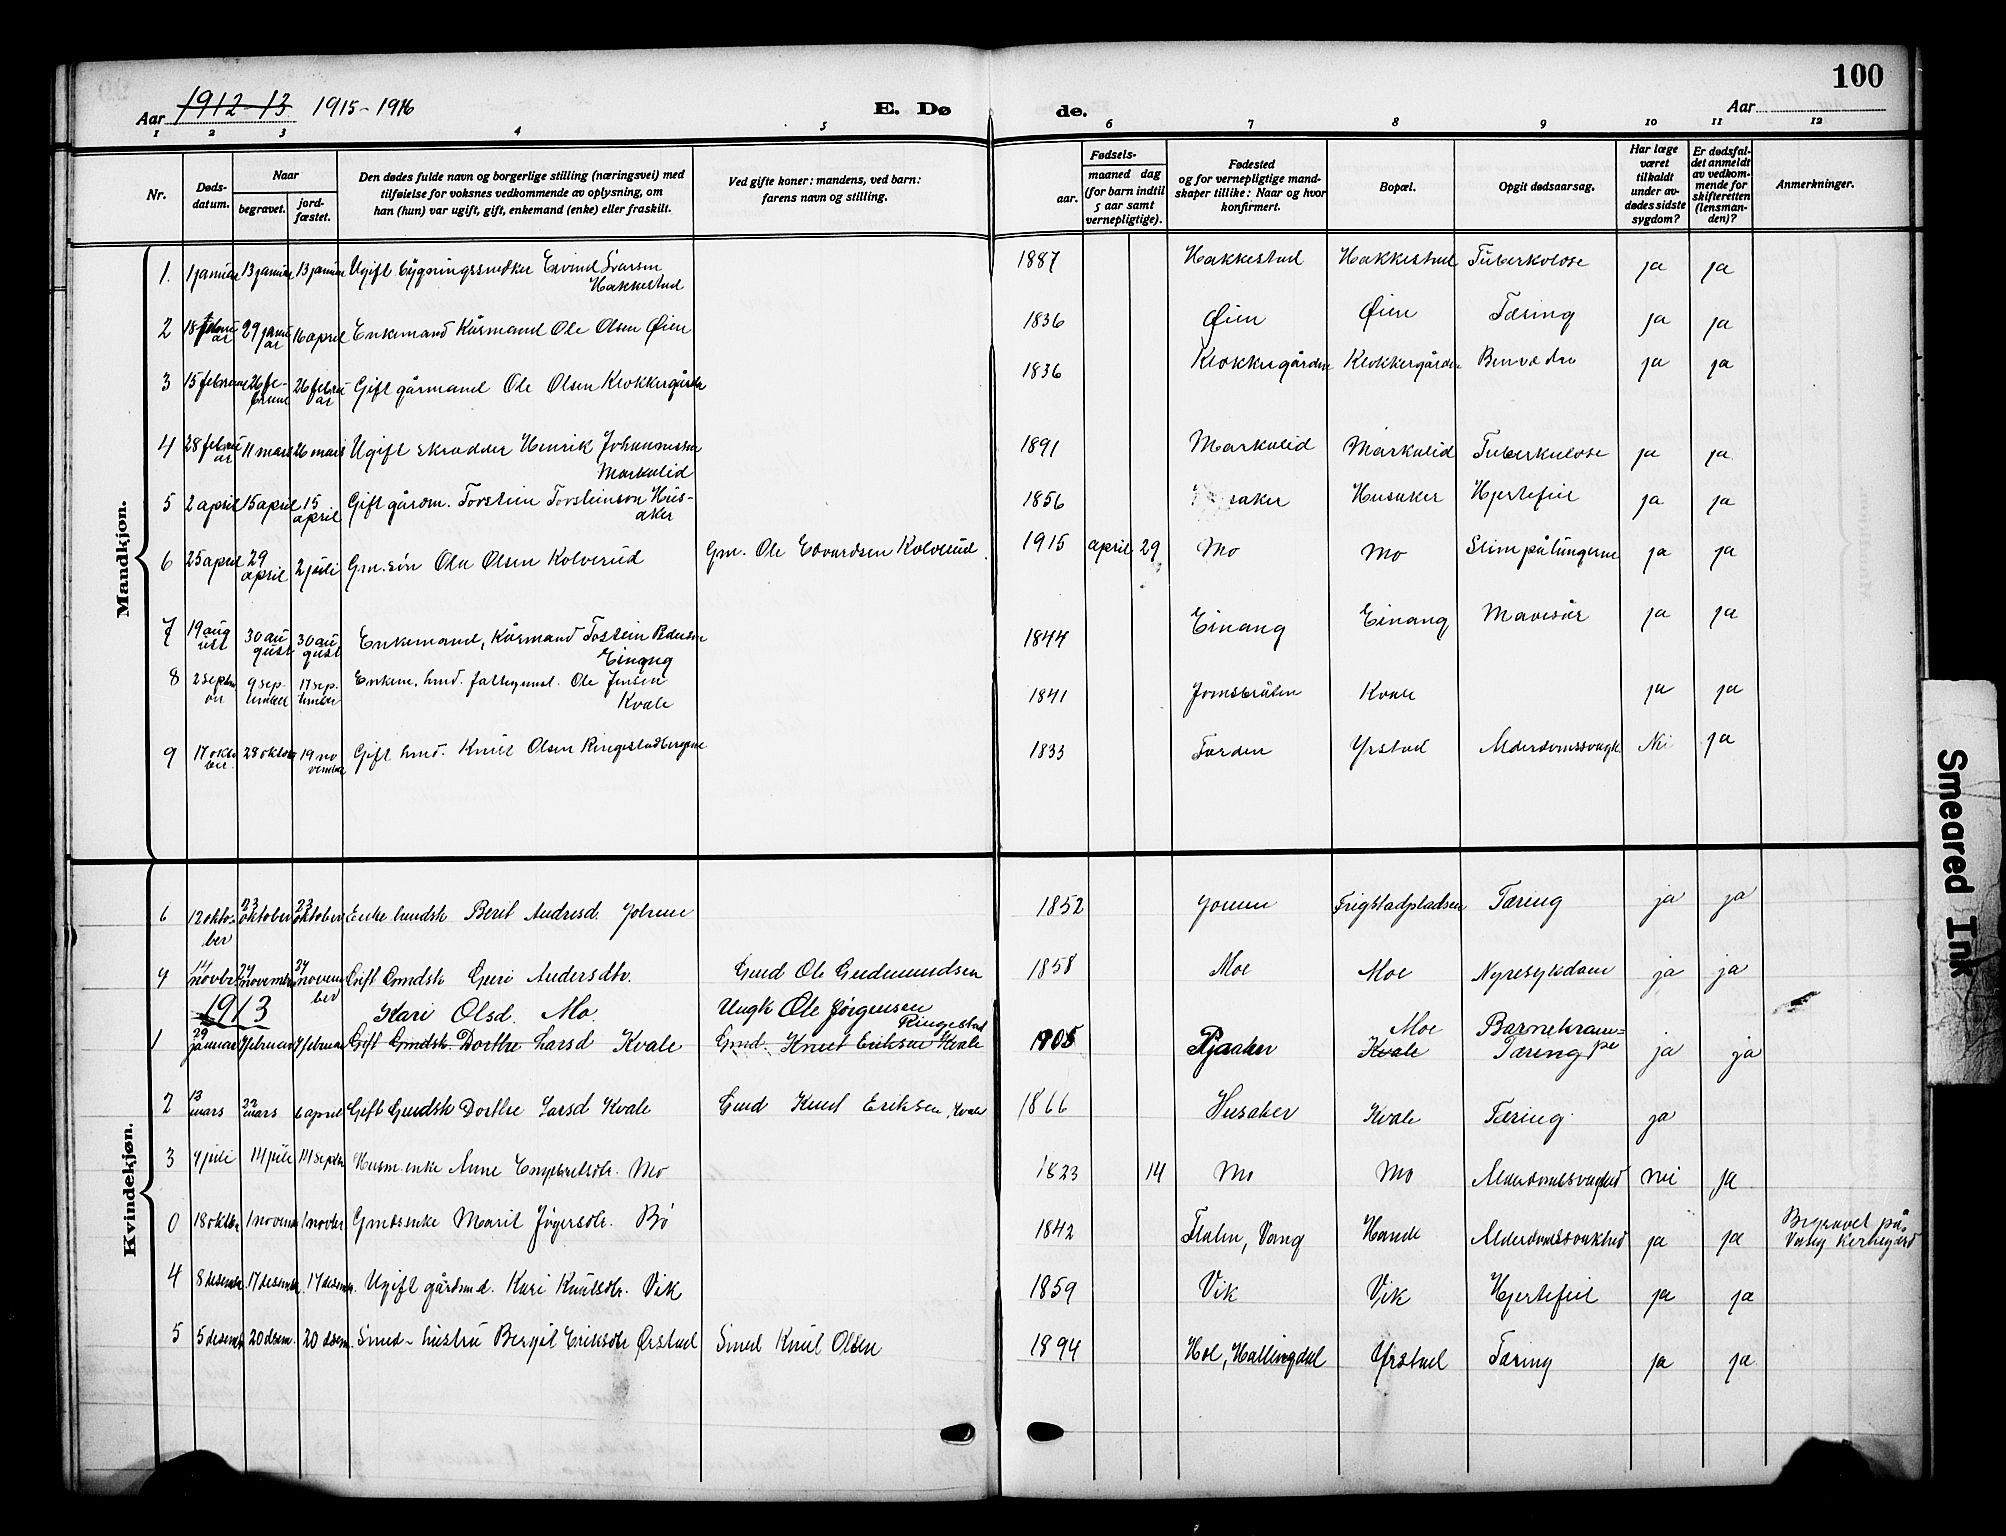 100
Aar 1912-13 1915-1916 E. Døde. Aar
1 2 3 4 5 6 7 8 9 10 11 12
Nr.
Døds-
datum.
Naar
begravet.
jord-
fæstet.
Den dødes fulde navn og borgerlige stilling (næringsvei) med
tilføielse for voksnes vedkommende av oplysning, om
han (hun) var ugift, gift, enkemand (enke) eller fraskilt.
Ved gifte koner: mandens, ved barn:
farens navn og stilling.
Fødsels-
aar.
maaned dag
(for barn indtil
5 aar samt
vernepligtige).
Fødested
og for vernepligtige mand-
skaper tillike: Naar og hvor
konfirmert.
Bopæl.
Opgit dødsaarsag.
Har læge
været
tilkaldt
under av-
dødes sidste
sygdom?
Er dødsfal-
det anmeldt
av vedkom-
mende for
skifteretten
(lensman-
den)?
Anmerkninger.
Mandkjøn.
1. 1 januar 13 januar 13 januar Ugift bygningssnedker Eivind Ivarsen
Hakkestad 1887 Hakkestad Hakkestad Tuberkulose ja ja
2 18 februar 29 januar 16 april Enkemand Kårmand Ole Olsen Øien 1836 Øien Øien Tæring ja ja
3 15 februar 26 februar 26 februar Gift gårmand Ole Olsen Klokkergården 1836 Klokkergården Klokkergården ja ja
4 28 februar 11 mars 26 mars Ugift skrædder Henrik Johannessen
Markalid 1891 Markalid Markalid Tuberkulose ja ja.
5 2 april 15 april 15 april Gift gårdm. Torstein Torsteinson Hus-
aker 1856 saker Husaker Hjertefeil ja ja
6 25 april 29 april 2 juli Gm. søn Ola Olsen Kolverud Gm. Ole Edvardsen Kolverud 1915 april 29 Mo Mo Slim på lungerne ja ja
7 19 august 30 august 30 august Enkemand, Kårmand Tostein Pedersen
Einang 1844 Einang Einang Mavesår ja ja
8 2 september 9 september 17 september Enkem. husd. fattigunst. Ole Jensen
Kvale 1841 Jomsbråten Kvale ja ja
9 17 oktober 28 oktober 19 november Gift husd. Knut Olsen Ringestadbergene 1833 Yrstad Alderdomssvagh. Nei ja
Kvindekjøn.
6 12 oktober 23 oktober 23 oktober Enke husdsk Berit Andresd. 1852 Frigstadpladsen Tæring ja ja
14 novbr 24 november 24 november Gift Gmdsk Guri Andersdtr. Gmd Ole Gudmundsen 1858 Moe Moe Nyresykdom ja ja
1913 Kari Olsd. Mo. Ungk Ole Jørgensen
Ringestad Moe Barnekrampe
1 29 januar 7 februar 7 februar Gift Gmdsk Dorthe Larsd Kvale Gmd Knut Eriksen Kvale 1905 Kvale Tæring ja ja
2 13 mars 22 mars 6 april Gift Gmdsk Dorthe Larsd Kvale Gmd Knud Eriksen, Kvale 1866 Husaker Kvale Tæring. ja
3 9 juli 14 juli 14 septbr Husm. enke Anne Engebretsdtr. Mo 1823 14 Mo Mo Alderdomssvaghed nei ja
0 18 oktbr 1 november 1 novbr Gmdsenke Marit Bø 1842 Vang Hande Alderdomssvakhed ja ja Begravet på
kirkegård
4 8 desember 17 desember 17 desember Ugift gårdmd. Kari Knutsdtr. Vik 1859 Vik Vik Hjertefeil ja ja
5 5 desember 20 desem. 20 desem. Smed-hustru Bergit Eriksdtr Ørstad Smed Knut Olsen 1894 Hol, Hallingdal Ørstad Tæring ja ja
Smeared Ink